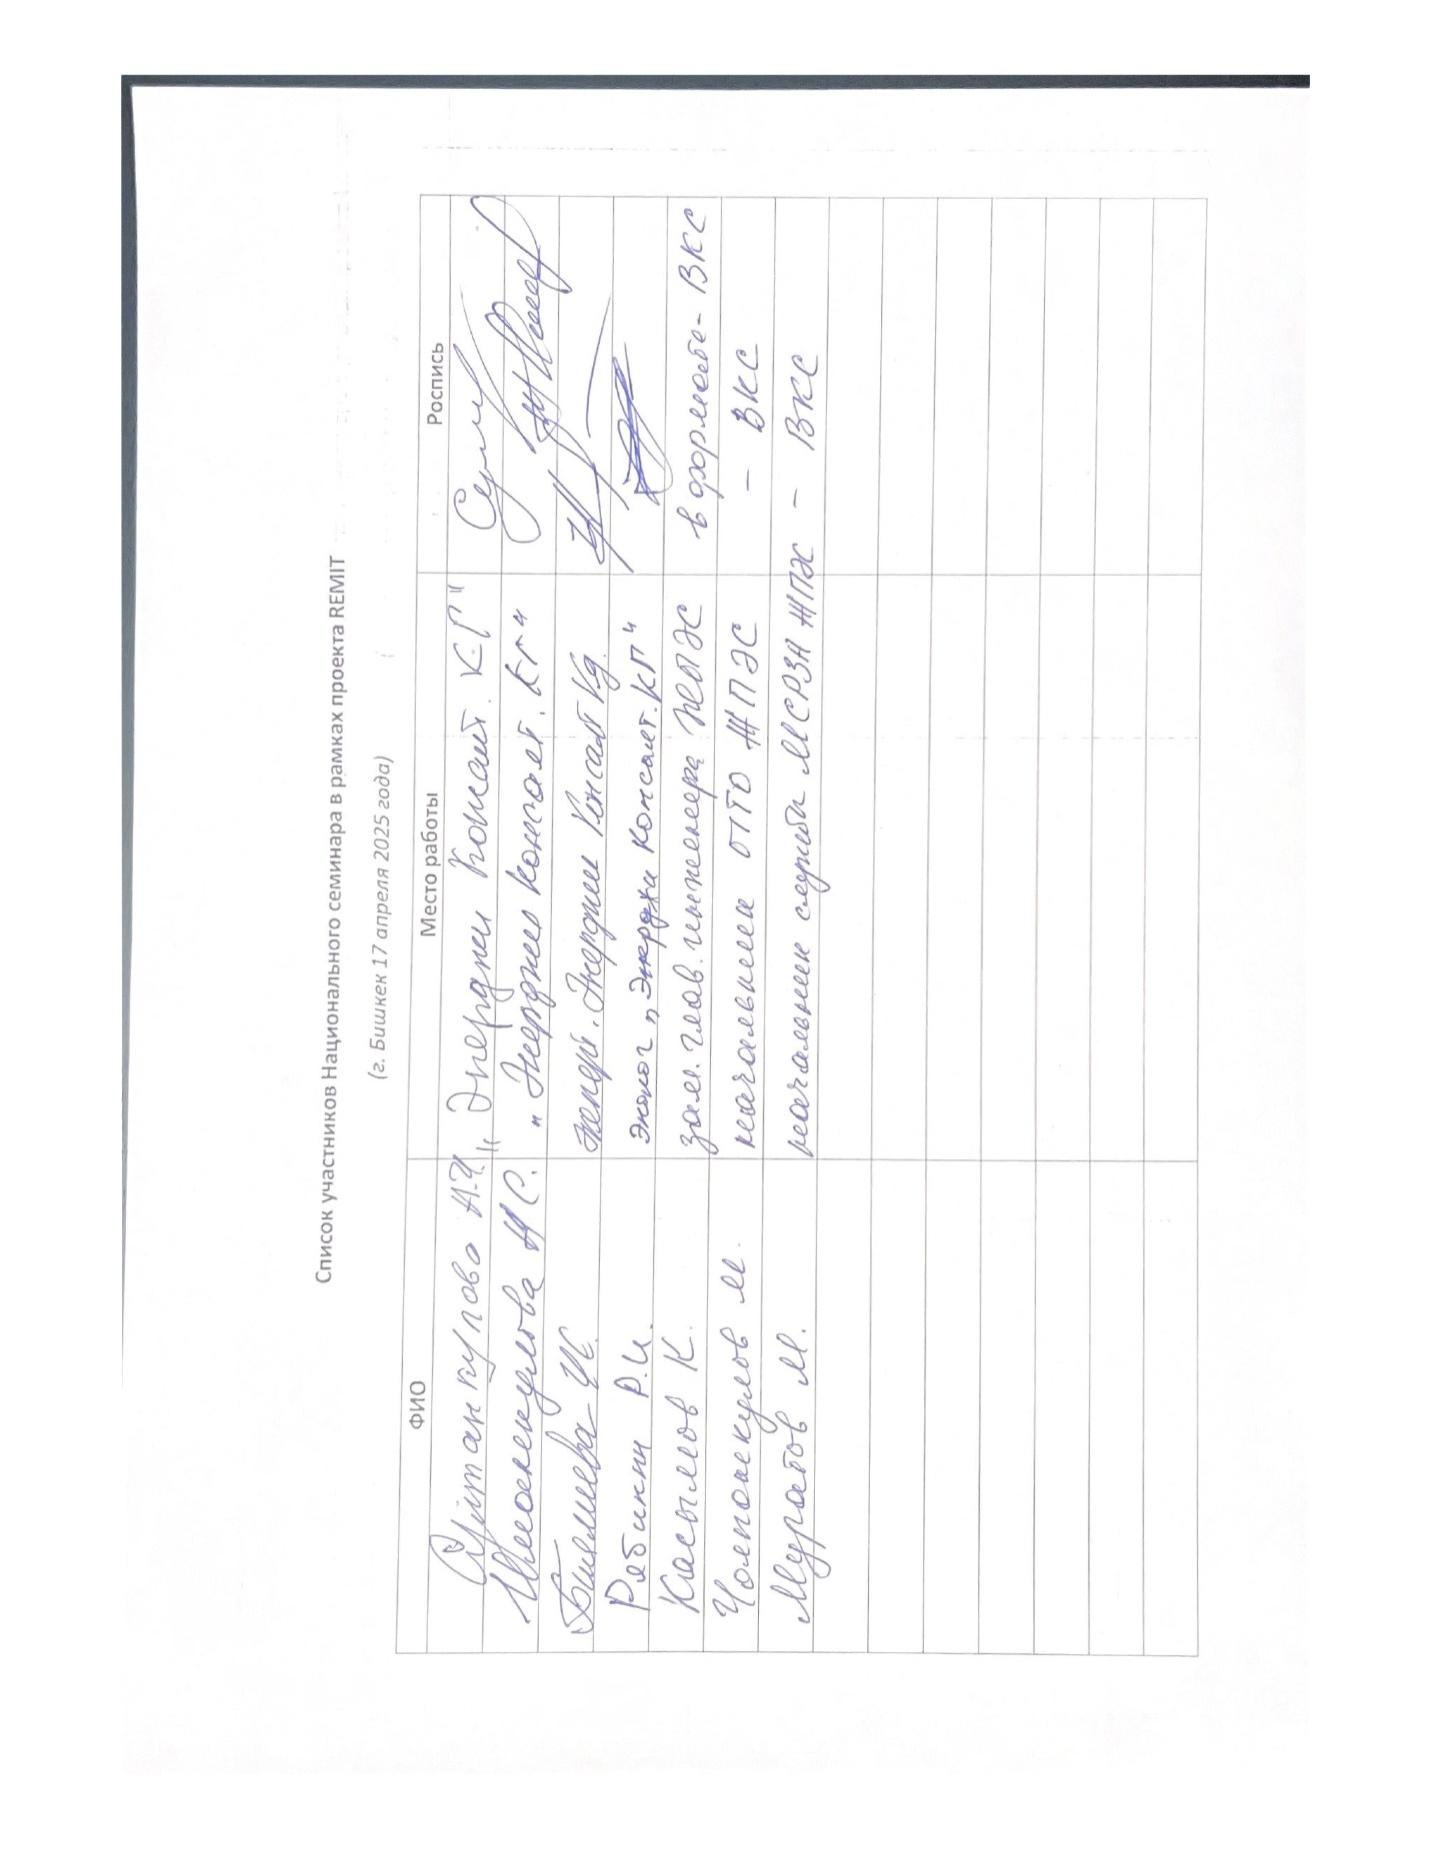 Список участников Национального семинара в рамках проекта REMIT
(г. Бишкек 17 апреля 2025 года)
ФИО Место работы Роспись
А.Ч. "Энерджи Консалт. КГ"
С. "Энерджи консалт. КГ"
Энерджи Консалт Kg.
Рябикин Р.И. эколог "Энерджи Консалт.КГ"
Касымов К. зам. глав. инженера в формате - ВКС
Чолпонкулов М. начальник ПТО ЖПЭС - ВКС
Муратов М. начальник службы МСРЗА - ВКС